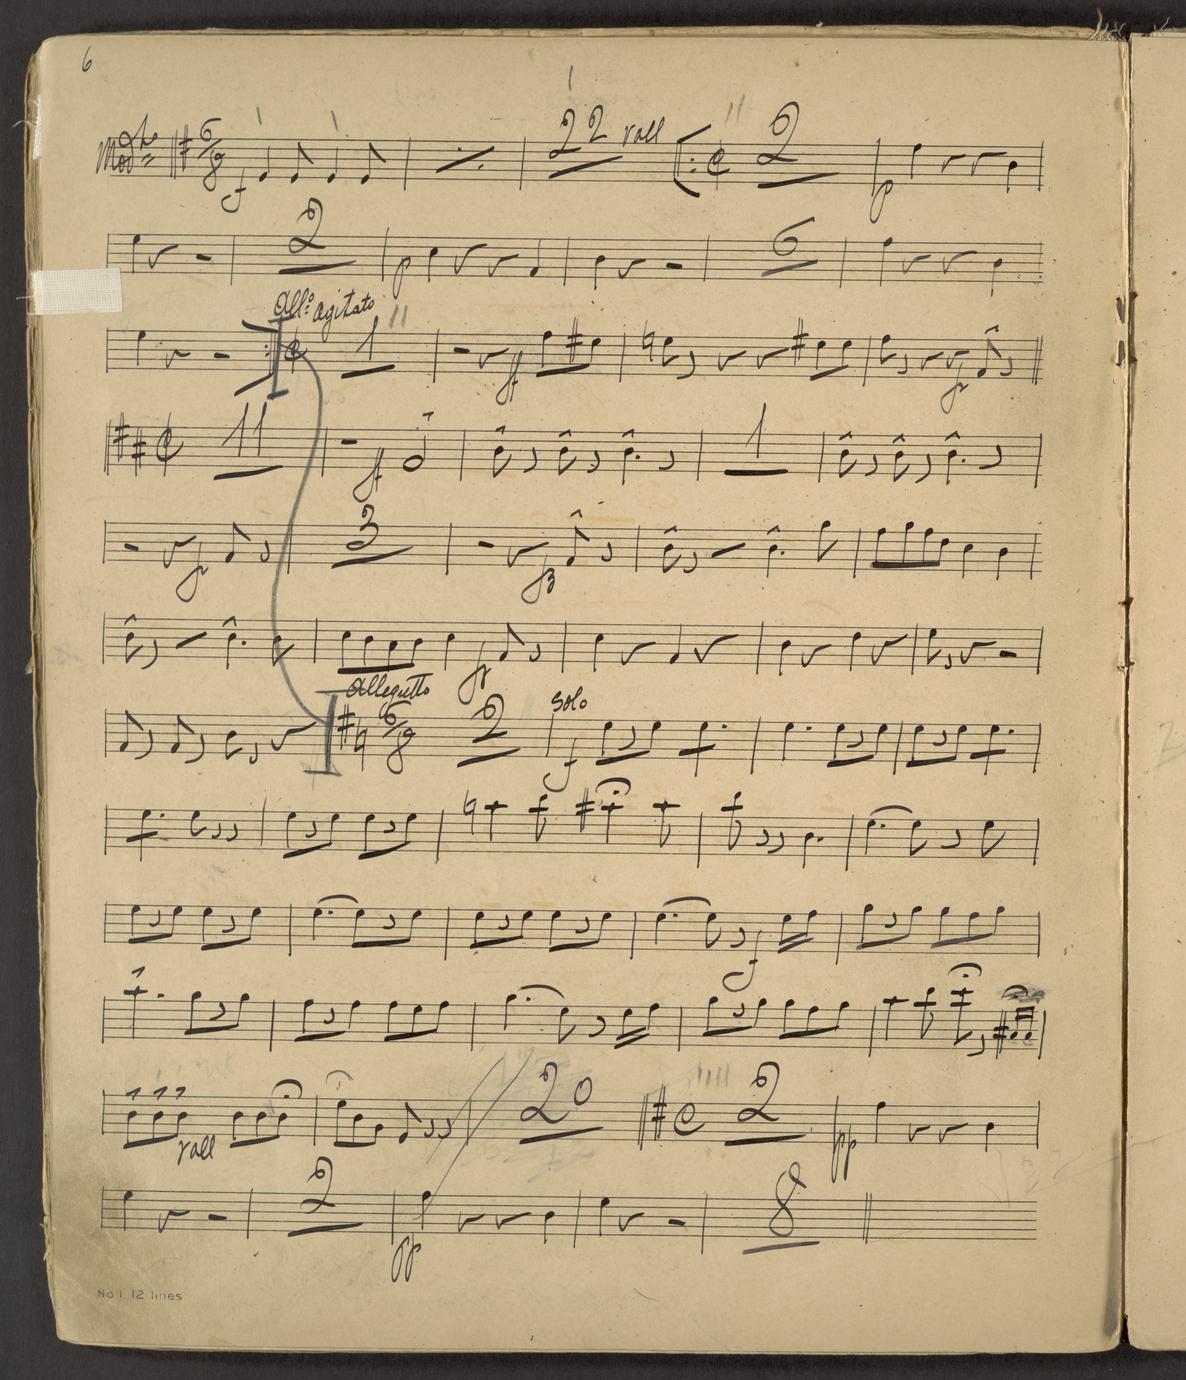 6
Modto 6/8 f 22 rall 2 p
2 p 6
Allo: agitato 1 ff fz
11 ff 1
fz 3 fz
fz
Allegretto 6/8 2 Solo f
f
rall 20 2 pp
2 pp 8
No 1 12 lines